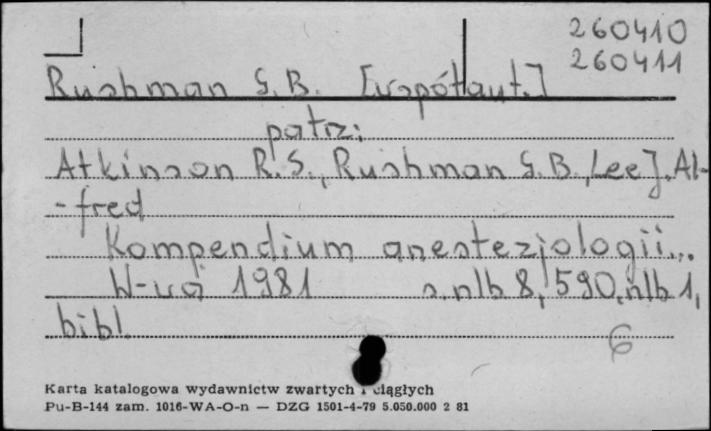 260410
260411
Rushman G.B. [współaut.]
patrz:
Atkinson R.S., Rushman G.B., Lee J. Al-
-fred
Kompendium anestezjologii...
W-wa 1981 s. nlb 8, 590, nlb 1,
bibl.
6
Karta katalogowa wydawnictw zwartych i ciągłych
Pu-B-144 zam. 1016-WA-O-n — DZG 1501-4-79 5.050.000 2 81